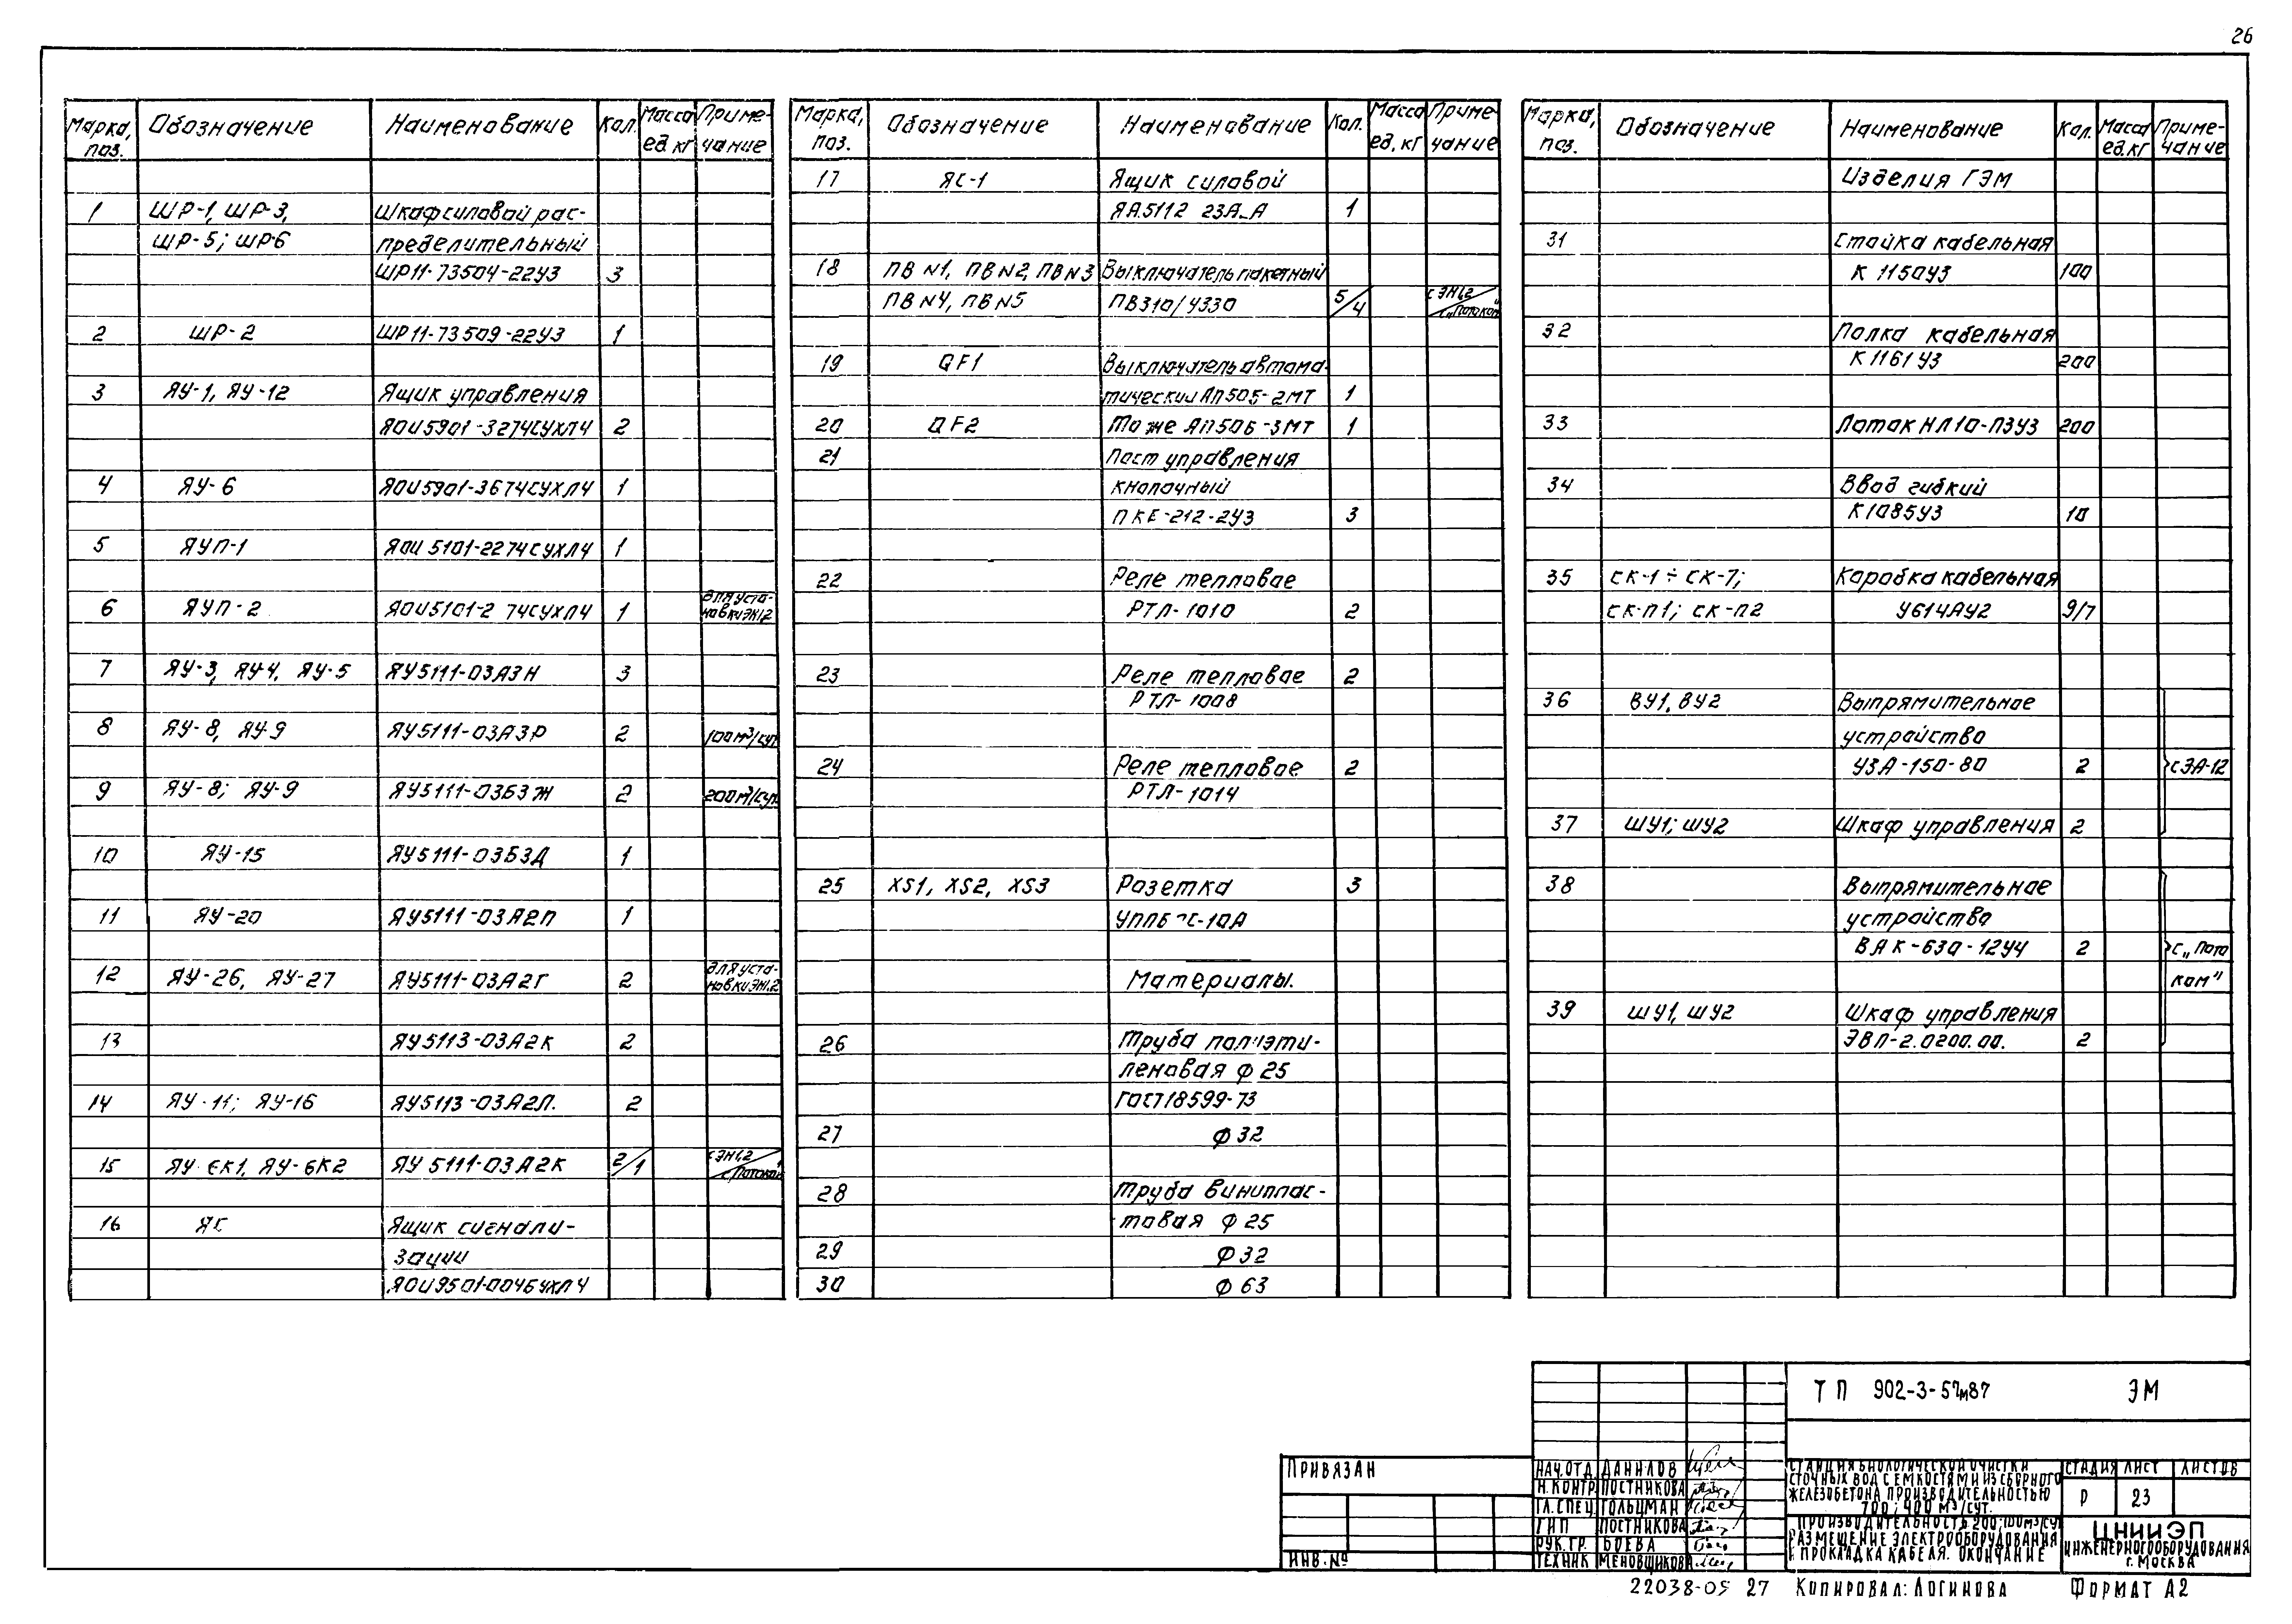 26
Марка, поз. Обозначение Наименование Кол. Масса ед. кг Приме-чание
1 ШР-1, ШР-3, Шкаф силовой рас-
ШР-5; ШР-6 пределительный
ШР11-73504-22У3 3
2 ШР-2 ШР11-73509-22У3 1
3 ЯУ-1, ЯУ-12 Ящик управления
ЯОИ5901-3274СУХЛ4 2
4 ЯУ-6 ЯОИ5901-3674СУХЛ4 1
5 ЯУП-1 ЯОИ 5101-2274СУХЛ4 1
6 ЯУП-2 ЯОИ5101-2 74СУХЛ4 1 для уста-
7 ЯУ-3, ЯУ-4, ЯУ-5 ЯУ5111-03А3Н 3
8 ЯУ-8, ЯУ-9 ЯУ5111-03А3Р 2 100м³/сут
9 ЯУ-8; ЯУ-9 ЯУ5111-03Б3Ж 2 200м³/сут
10 ЯУ-15 ЯУ5111-03Б3Д 1
11 ЯУ-20 ЯУ5111-03А2П 1
12 ЯУ-26, ЯУ-27 ЯУ5111-03А2Г 2 для уста-
13 ЯУ5113-03А2К 2
14 ЯУ-11; ЯУ-16 ЯУ5113-03А2Л. 2
15 ЯУ-6К2 ЯУ 5111-03А2К 2/1
16 ЯС Ящик сигнали-
зации
ЯОИ9501-0046УХЛ4
Марка, поз. Обозначение Наименование Кол. Масса ед. кг Приме-чание
17 ЯС-1 Ящик силовой
ЯА5112 23А-А 1
18 ПВ N1, ПВ N2, ПВ N3 Выключатель пакетный
ПВ N4, ПВ N5 ПВ310/У330 5/4
19 QF1 Выключатель автома-
тический АП505-2МТ 1
20 QF2 То же АП506-3МТ 1
21 Пост управления
кнопочный
ПКЕ-212-2У3 3
22 Реле тепловое
РТЛ-1010 2
23 Реле тепловое 2
РТЛ-1008
24 Реле тепловое 2
РТЛ-1014
25 XS1, XS2, XS3 Розетка 3
С-10А
Материалы.
26 Труба полиэти-
леновая Ф 25
ГОСТ18599-73
27 Ф 32
28 Труба виниплас-
товая Ф 25
29 Ф 32
30 Ф 63
Марка, поз. Обозначение Наименование Кол. Масса ед. кг Приме-чание
Изделия ГЭМ
31 Стойка кабельная
К 1150У3 100
32 Полка кабельная
К 1161 У3 200
33 Лоток НЛ10-П3У3 200
34 Ввод гибкий
К1085У3 10
35 СК-1 ÷ СК-7; Коробка кабельная
СК-П1; СК-П2 У614АУ2 9/7
36 ВУ1, ВУ2 Выпрямительное
устройство
УЗА-150-80 2 с ЭА-12
37 ШУ1; ШУ2 Шкаф управления 2
38 Выпрямительное
устройство
ВАК-630-12У4 2 с „Пото
ком"
39 ШУ1, ШУ2 Шкаф управления
ЭВП-2.0200.00. 2
ТП 902-3-57м87 ЭМ
ПРИВЯЗАН
ИНВ. №
НАЧ.ОТД. ДАНИЛОВ
Н.КОНТР. ПОСТНИКОВА
ГЛ.СПЕЦ. ГОЛЬЦМАН
ГИП ПОСТНИКОВА
РУК.ГР. БОЕВА
ТЕХНИК МЕНОВЩИКОВА
СТАНЦИЯ БИОЛОГИЧЕСКОЙ ОЧИСТКИ
СТОЧНЫХ ВОД С ЕМКОСТЯМИ ИЗ СБОРНОГО
ЖЕЛЕЗОБЕТОНА ПРОИЗВОДИТЕЛЬНОСТЬЮ
700; 400 М³/СУТ.
ПРОИЗВОДИТЕЛЬНОСТЬ 200; 100М³/СУТ
РАЗМЕЩЕНИЕ ЭЛЕКТРООБОРУДОВАНИЯ
И ПРОКЛАДКА КАБЕЛЯ. ОКОНЧАНИЕ
СТАДИЯ ЛИСТ ЛИСТОВ
Р 23
ЦНИИЭП
ИНЖЕНЕРНОГО ОБОРУДОВАНИЯ
г. МОСКВА
22038-05 27 КОПИРОВАЛ: ЛОГИНОВА ФОРМАТ А2